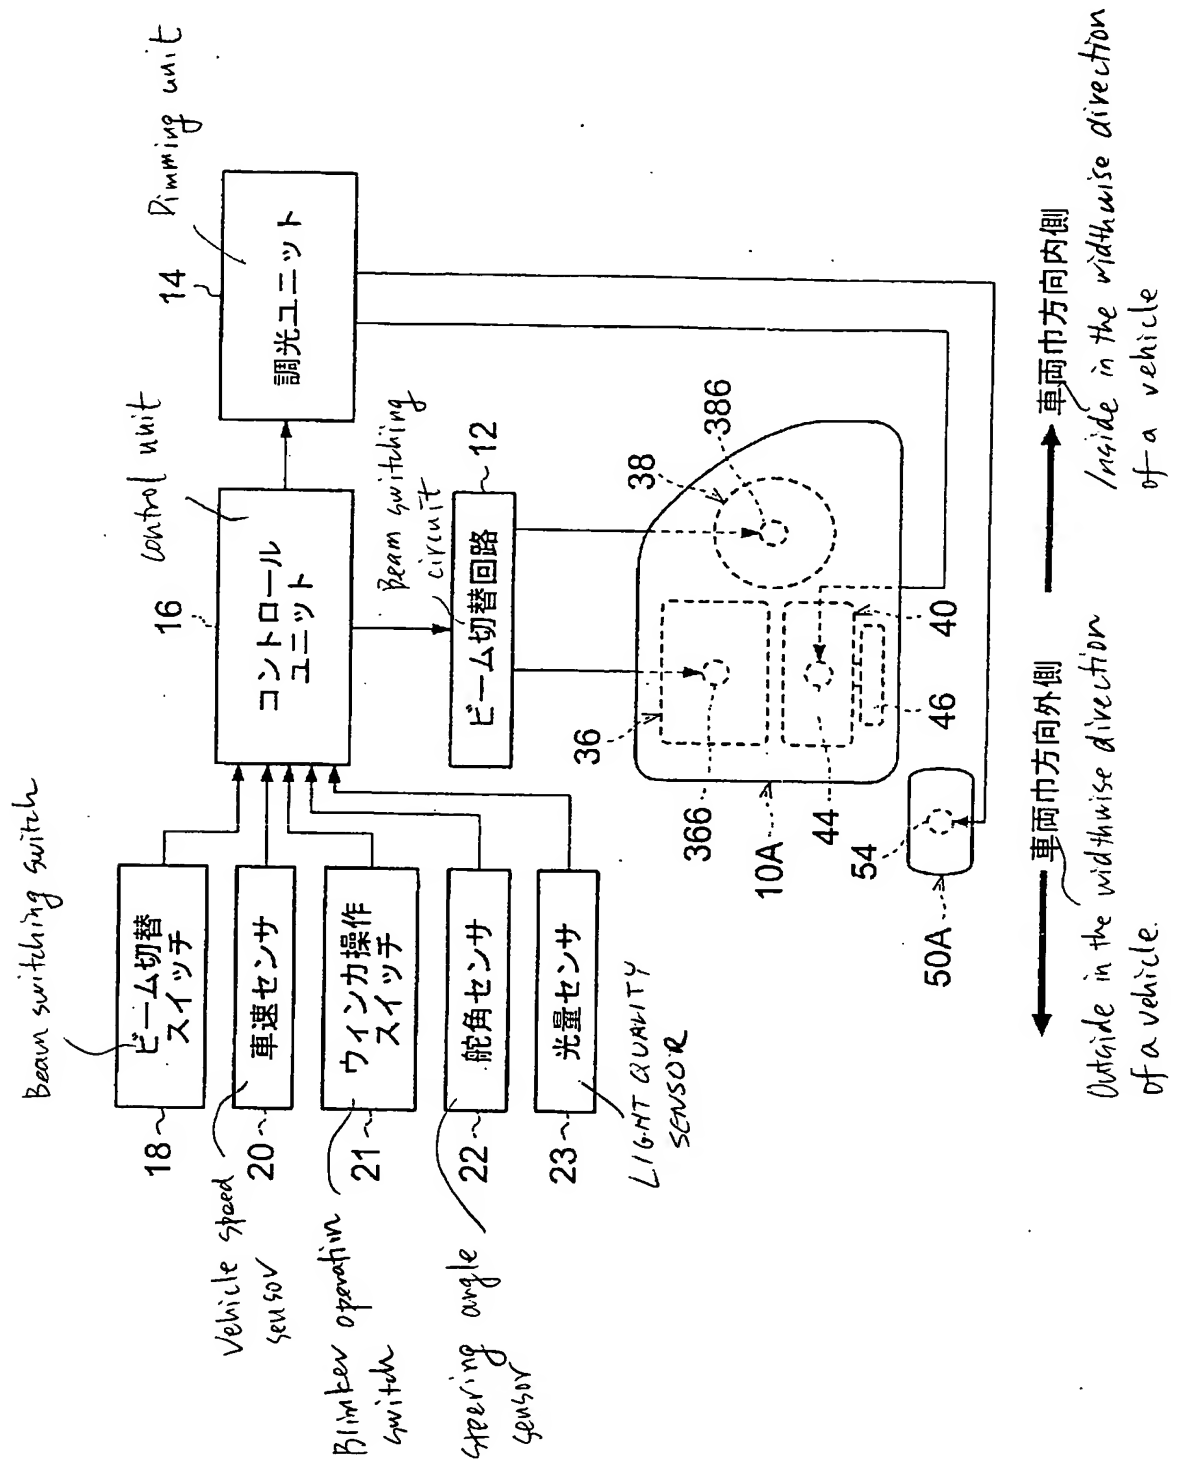 Beam switching switch
ビーム切替
スイッチ
18
Vehicle speed
sensor
車速センサ
20
Blinker operation
switch
ウィンカ操作
スイッチ
21
Steering angle
sensor
舵角センサ
22
光量センサ
23
LIGHT QUALITY
SENSOR
control unit
16
コントロール
ユニット
Dimming unit
14
調光ユニット
Beam switching
circuit
ビーム切替回路
12
36
366
38
386
40
44
46
10A
54
50A
車両巾方向外側
Outside in the widthwise direction
of a vehicle.
車両巾方向内側
Inside in the widthwise direction
of a vehicle